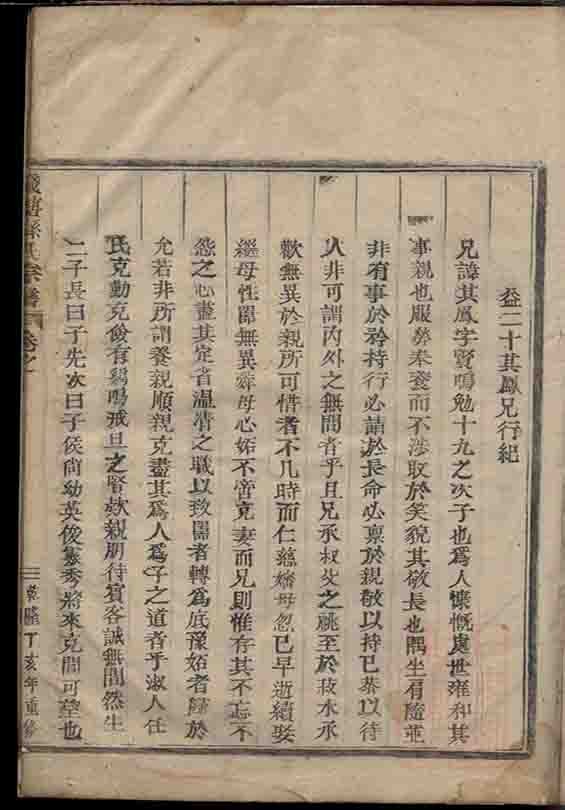 益二十其鳳兄行紀
兄諱其鳳字賢鳴勉十九之次子也爲人慷慨處世雍和其
事親也服勞奉養而不涉取於笑貌其敬長也隅坐肩隨並
非有事於矜持行必請於長命必禀於親敬以持已恭以待
人非可謂內外之無間者乎且兄承叔父之祧至於菽水承
歡無異於親所可惜者不几時而仁慈嬸母忽已早逝續娶
繼母性嚚無異舜母心妬不啻克妻而兄則惟存其不忘不
怨之心盡其定省溫凊之職以致嚚者轉爲底豫妬者歸於
允若非所謂養親順親克盡其爲人爲子之道者乎淑人任
氏克勤克儉有鷄鳴戒旦之賢欵親朋待賓客誠無間然生
二子長曰子先次曰子侯尚幼英俊秀將來克間可望也
孫氏宗譜
卷之
乾隆丁亥年重修